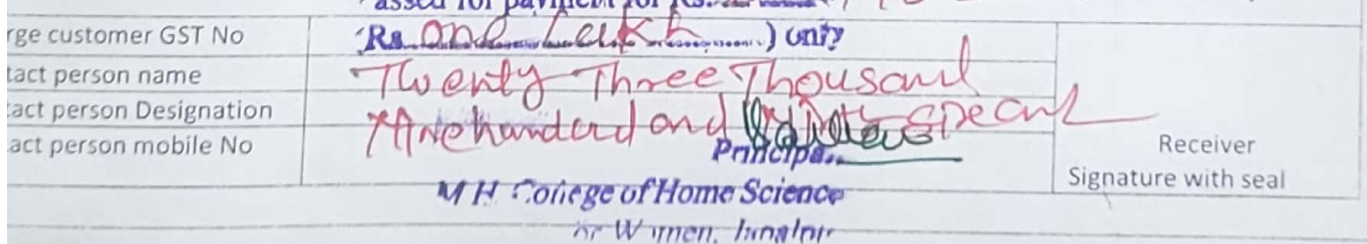 assed for payment for Rs.
rge customer GST No
Rs. one Lakh ) only
tact person name
Twenty Three Thousand
tact person Designation
hunderd and
act person mobile No
Principal
Receiver
Signature with seal
M H College of Home Science
or Women,